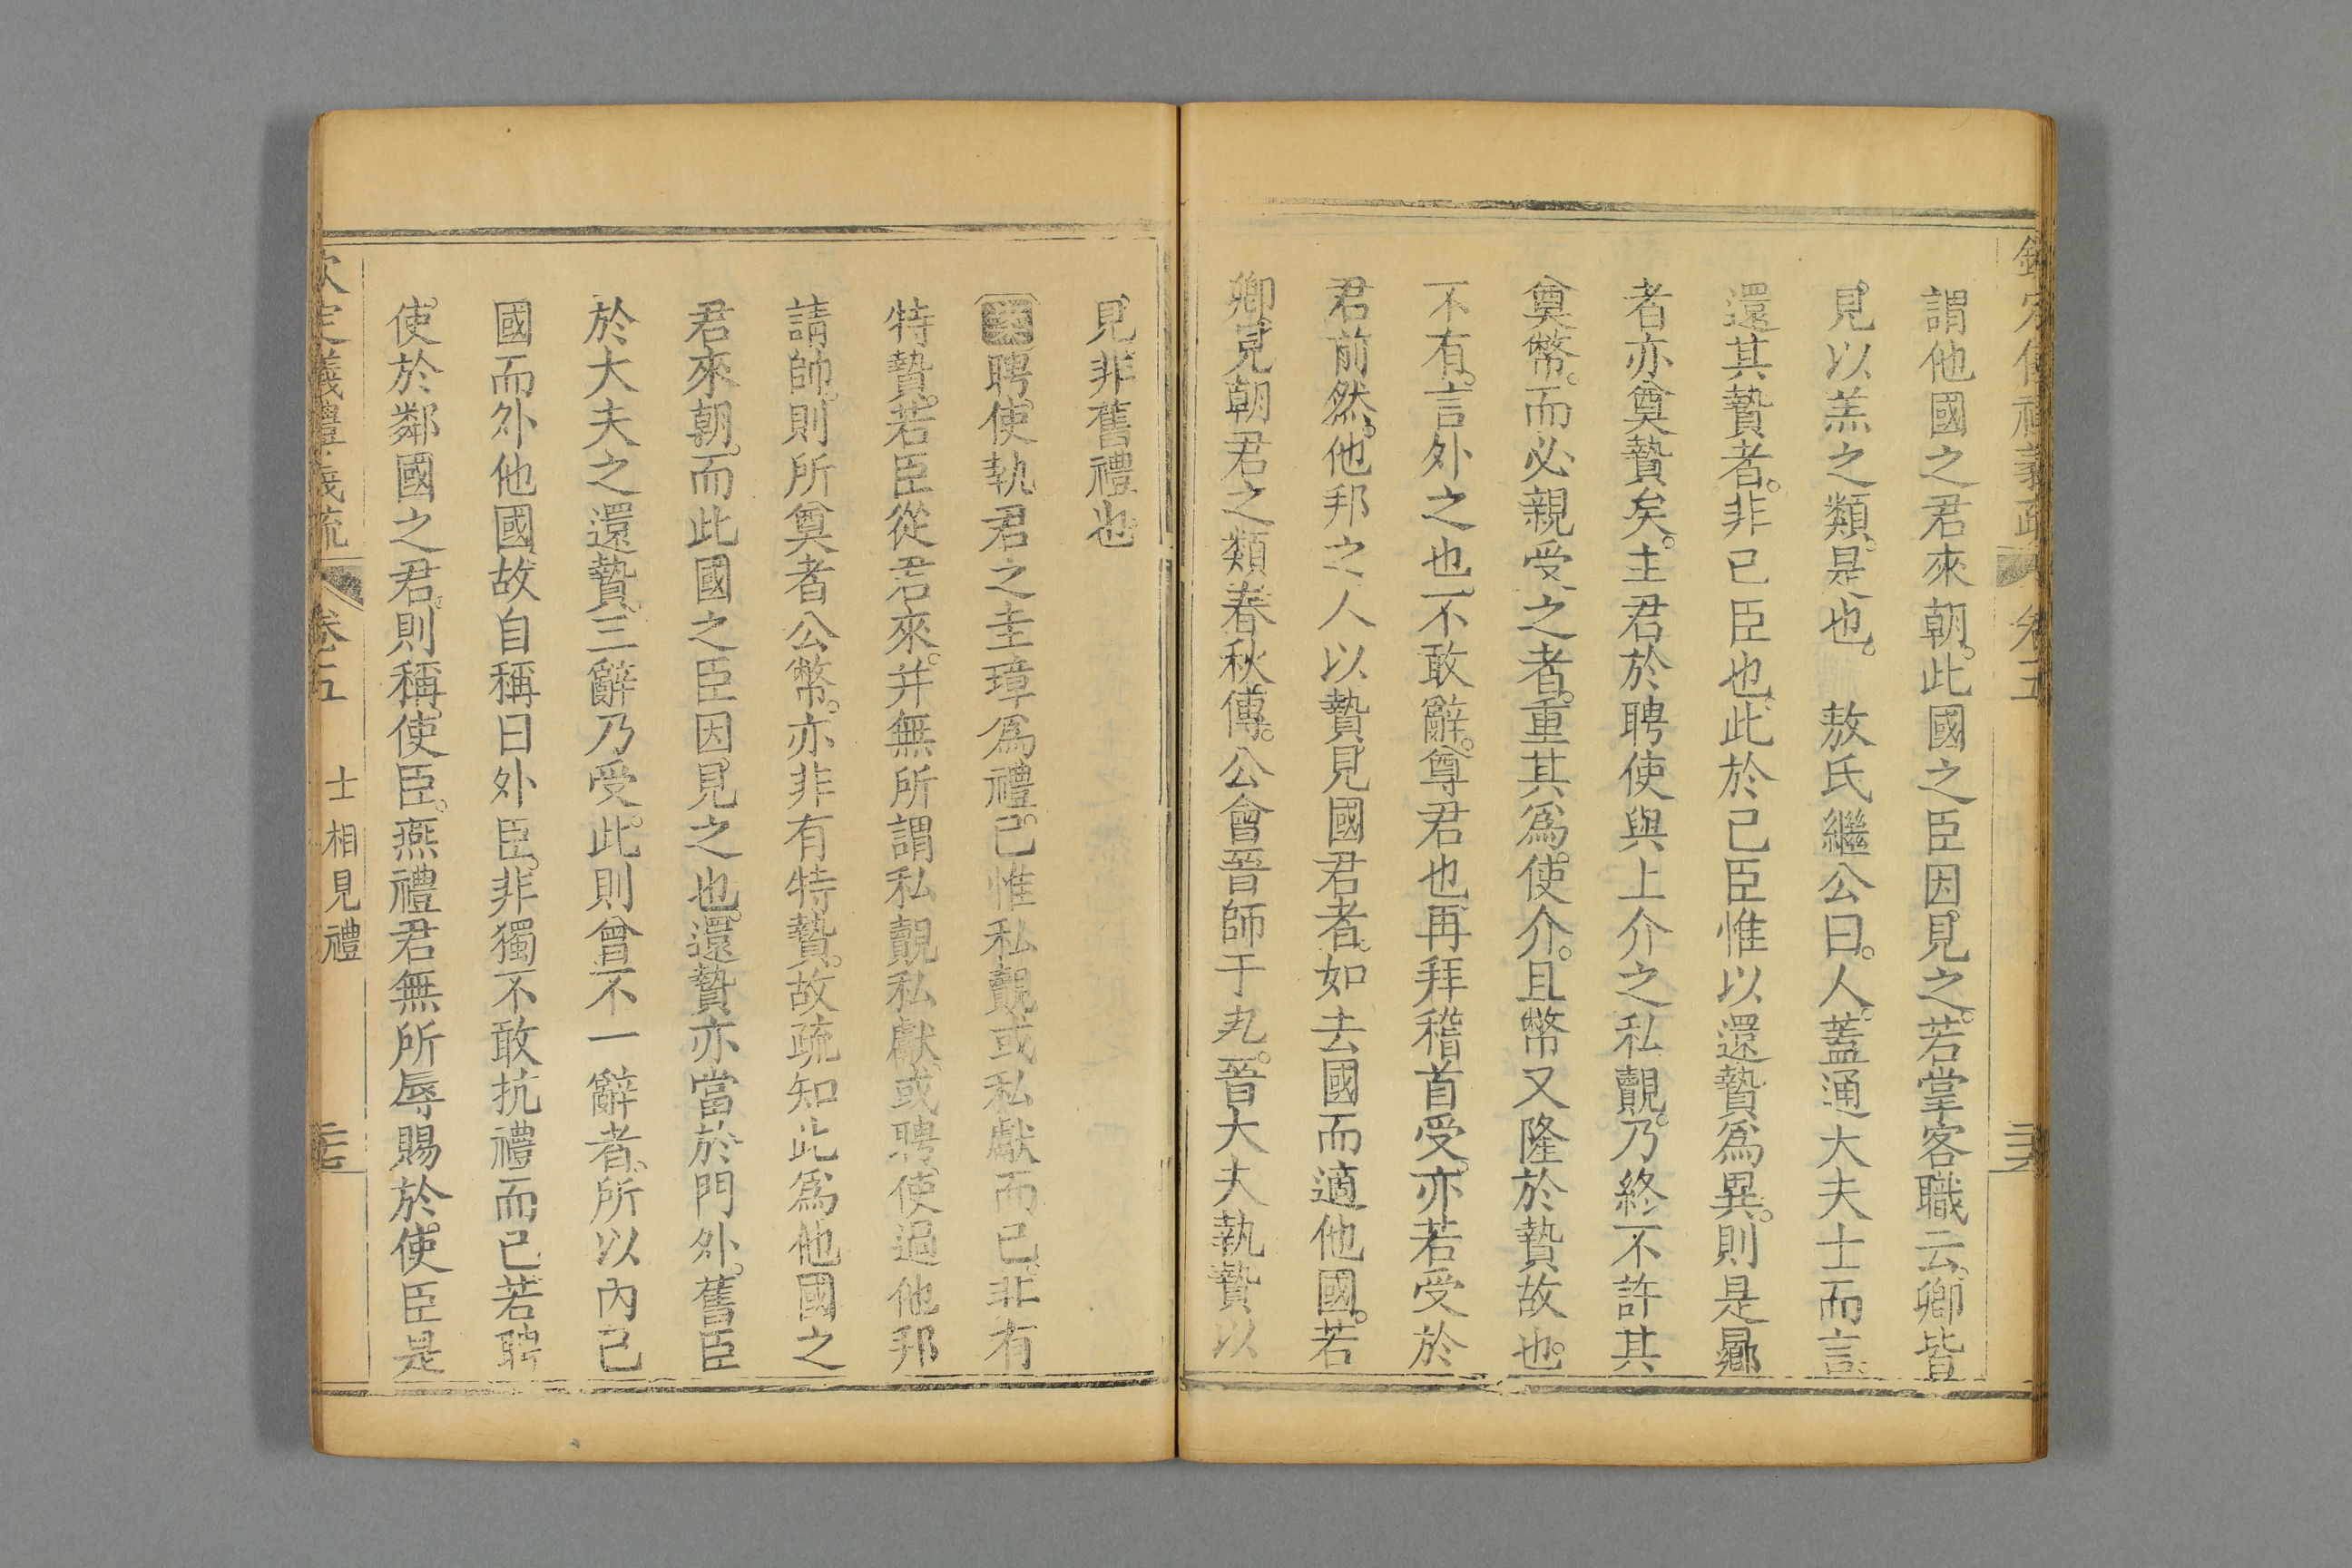 謂他國之君來朝。此國之臣因見之。若掌客職云。卿皆
見以羔之類。是也。　敖氏繼公曰。人。蓋通大夫士而言。
還其贄者。非已臣也。此於已臣惟以還贄爲異。則是曏
者亦奠贄矣。主君於聘使與上介之私覿。乃終不許其
奠幣。而必親受之者。重其爲使介。且幣又隆於贄故也。
不有。言外之也。不敢辭。尊君也。再拜稽首受。亦若受於
君前然。他邦之人以贄見國君者。如去國而適他國。若
卿見朝君之類。春秋傳。公會晉師于瓦。晉大夫執贄以
見。非舊禮也
聘使執君之圭璋爲禮。已惟私覿或私獻而已。非有
特贄。若臣從君來。并無所謂私覿私獻。或聘使過他邦
請帥。則所奠者公幣。亦非有特贄。故疏知此爲他國之
君來朝。而此國之臣因見之也。還贄亦當於門外。舊臣
於大夫之還贄。三辭乃受。此則曾不一辭者。所以內已
國而外他國。故自稱曰外臣。非獨不敢抗禮而已。若聘
使於鄰國之君。則稱使臣。燕禮君無所辱賜於使臣是
欽定儀禮義疏　卷五　士相見禮